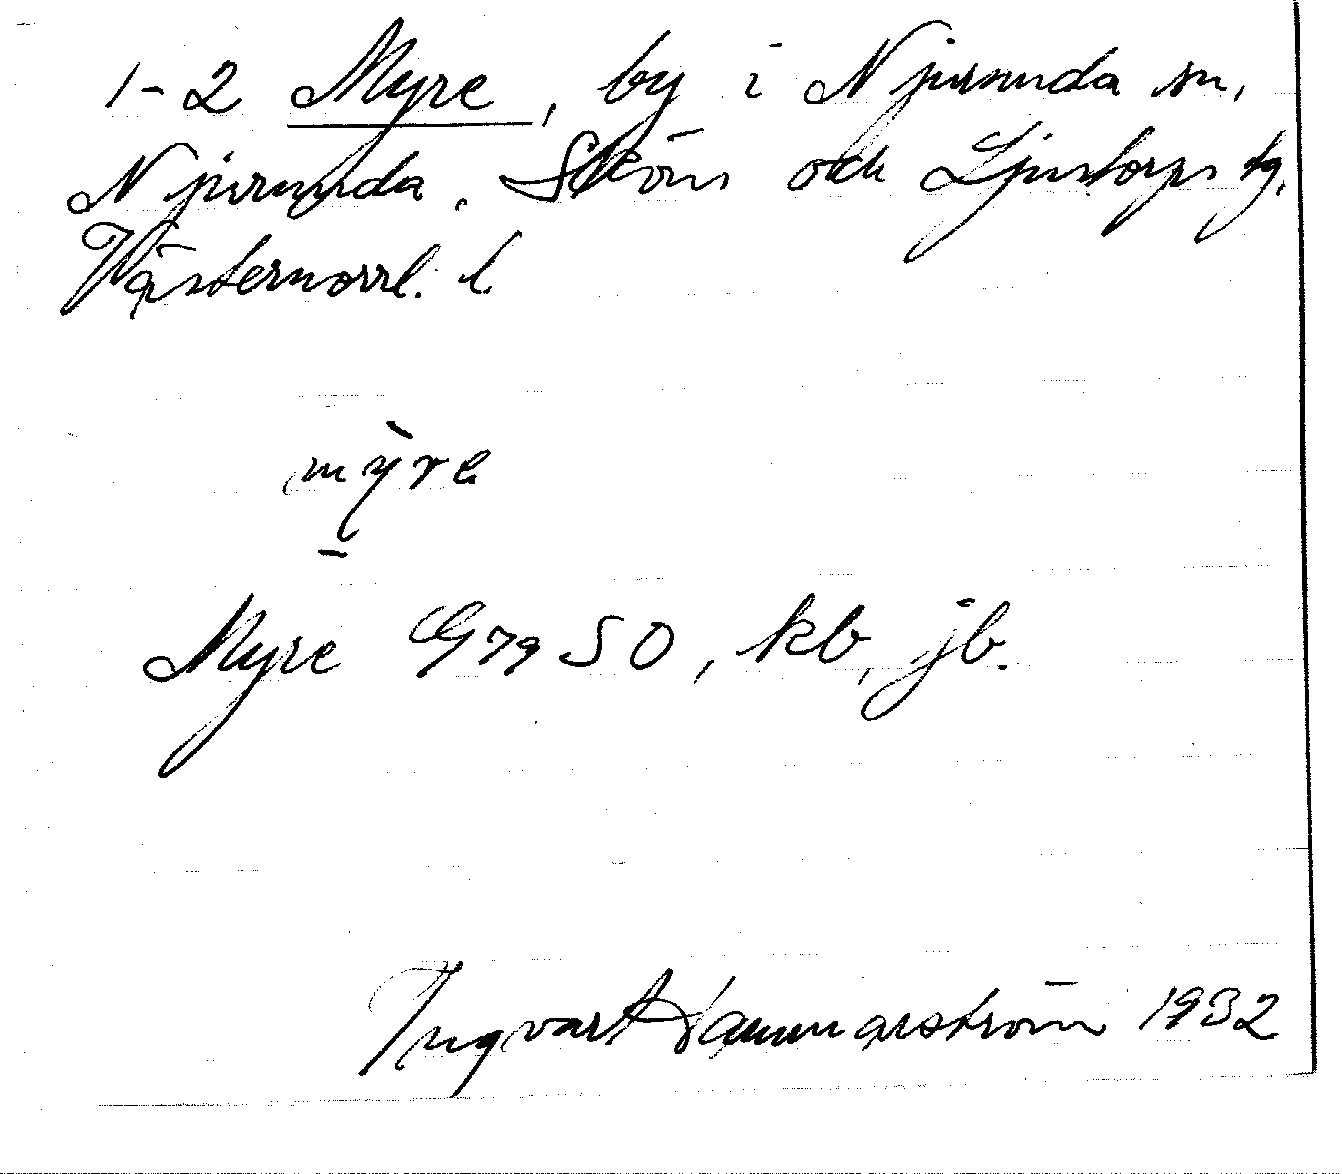 1-2 Myre, by i Njurunda sn,
Njurunda, Sköns och Ljustorps tg,
Västernorrl. l.
mỳre
Myre G79 SO, kb, jb.
Ingvart Hammarström 1932